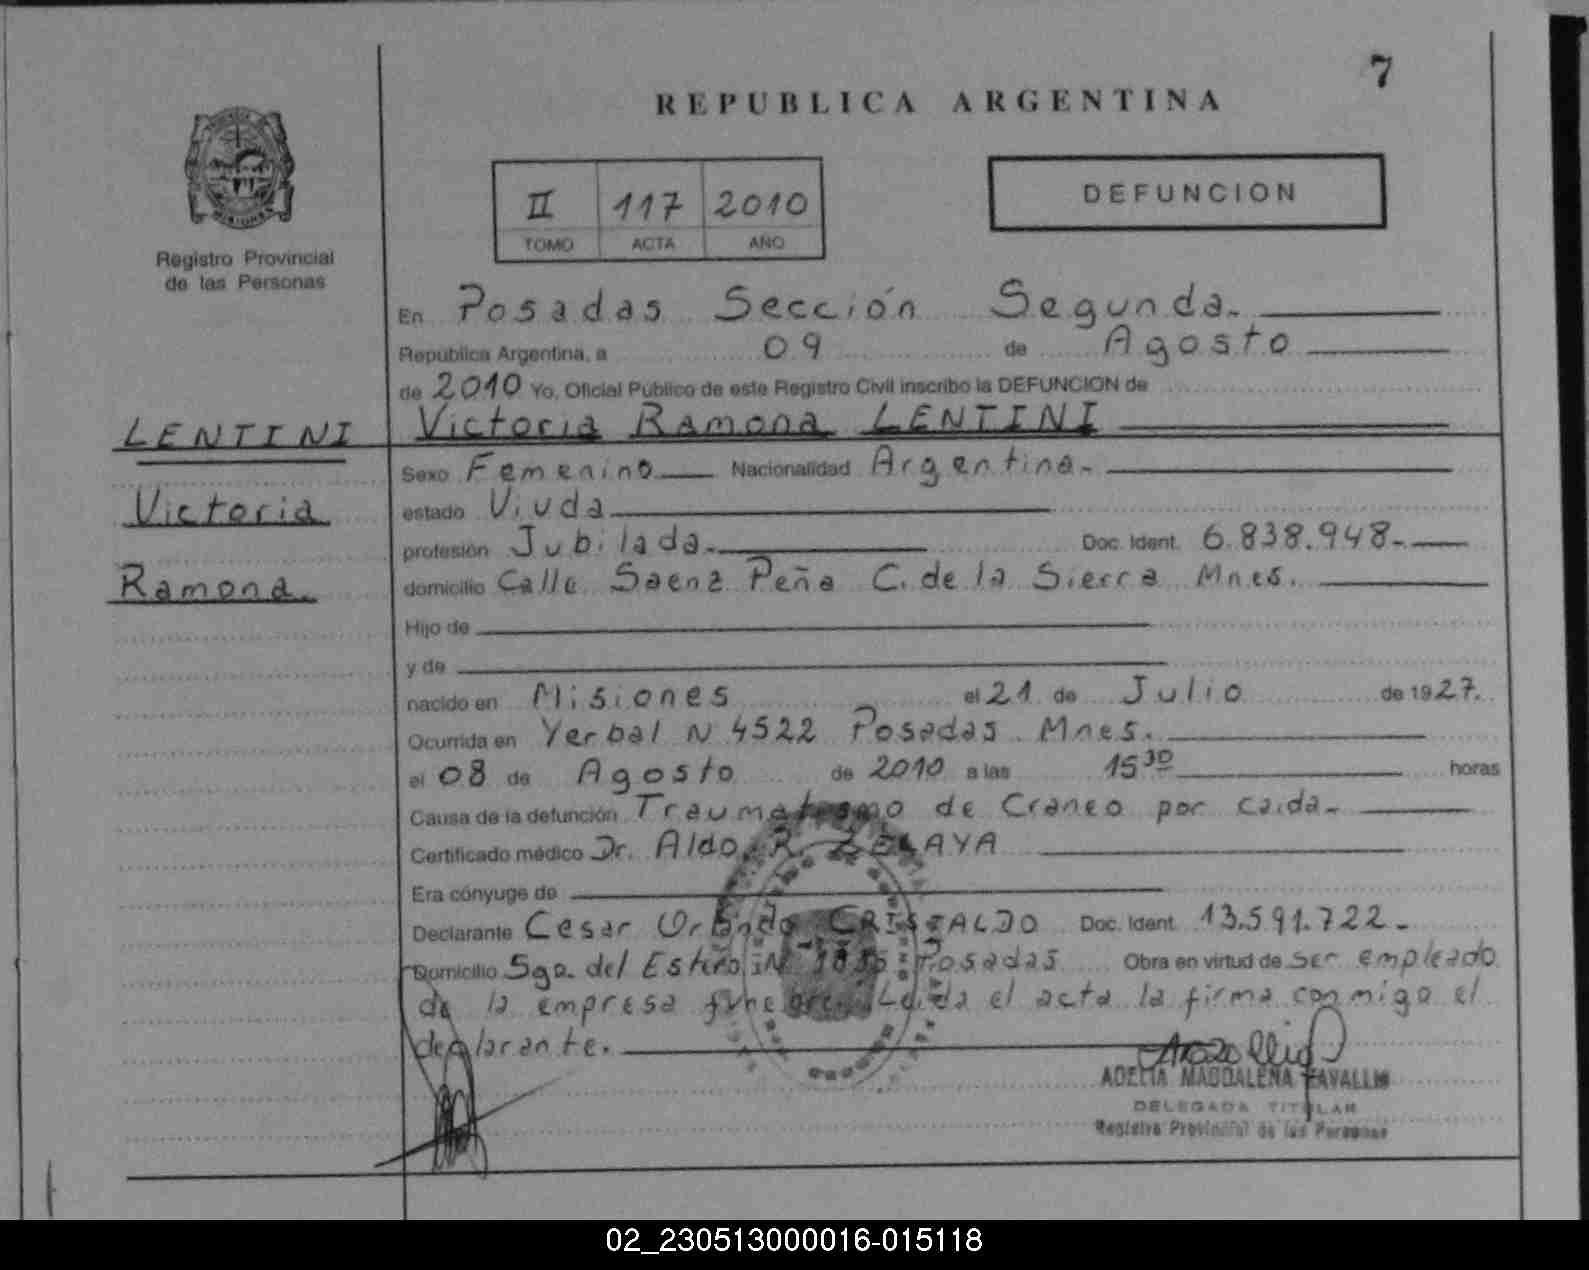 7
REPUBLICA ARGENTINA
Registro Provincial
de las Personas
II 117 2010
TOMO ACTA AÑO
DEFUNCION
En Posadas Sección Segunda.
Republica Argentina, a 09 de Agosto
de 2010 Yo, Oficial Público de este Registro Civil inscribo la DEFUNCION de
Victoria Ramona LENTINI
LENTINI
Victoria
Ramona.
Sexo Femenino Nacionalidad Argentina.
estado Viuda
profesión Jubilada. Doc. Ident. 6.838.948.
domicilio Calle Saenz Peña C. de la Sierra Mnes.
Hijo de
y de
nacido en Misiones el 21 de Julio de 1927.
Ocurrida en Yerbal N 4522 Posadas Mnes.
el 08 de Agosto de 2010 a las 15 30 horas
Causa de la defunción Traumatismo de Craneo por caida.
Certificado médico Dr. Aldo R. ZELAYA
Era cónyuge de
Declarante Cesar Orlando CRISTALDO Doc. Ident. 13.591.722.
Domicilio Sgo. del Estero N Posadas Obra en virtud de ser empleado
de la empresa funebre. Leida el acta la firma conmigo el
declarante.
ADELIA MAGDALENA
DELEGADA TITULAR
Registro Provincial de las Personas
02_230513000016-015118